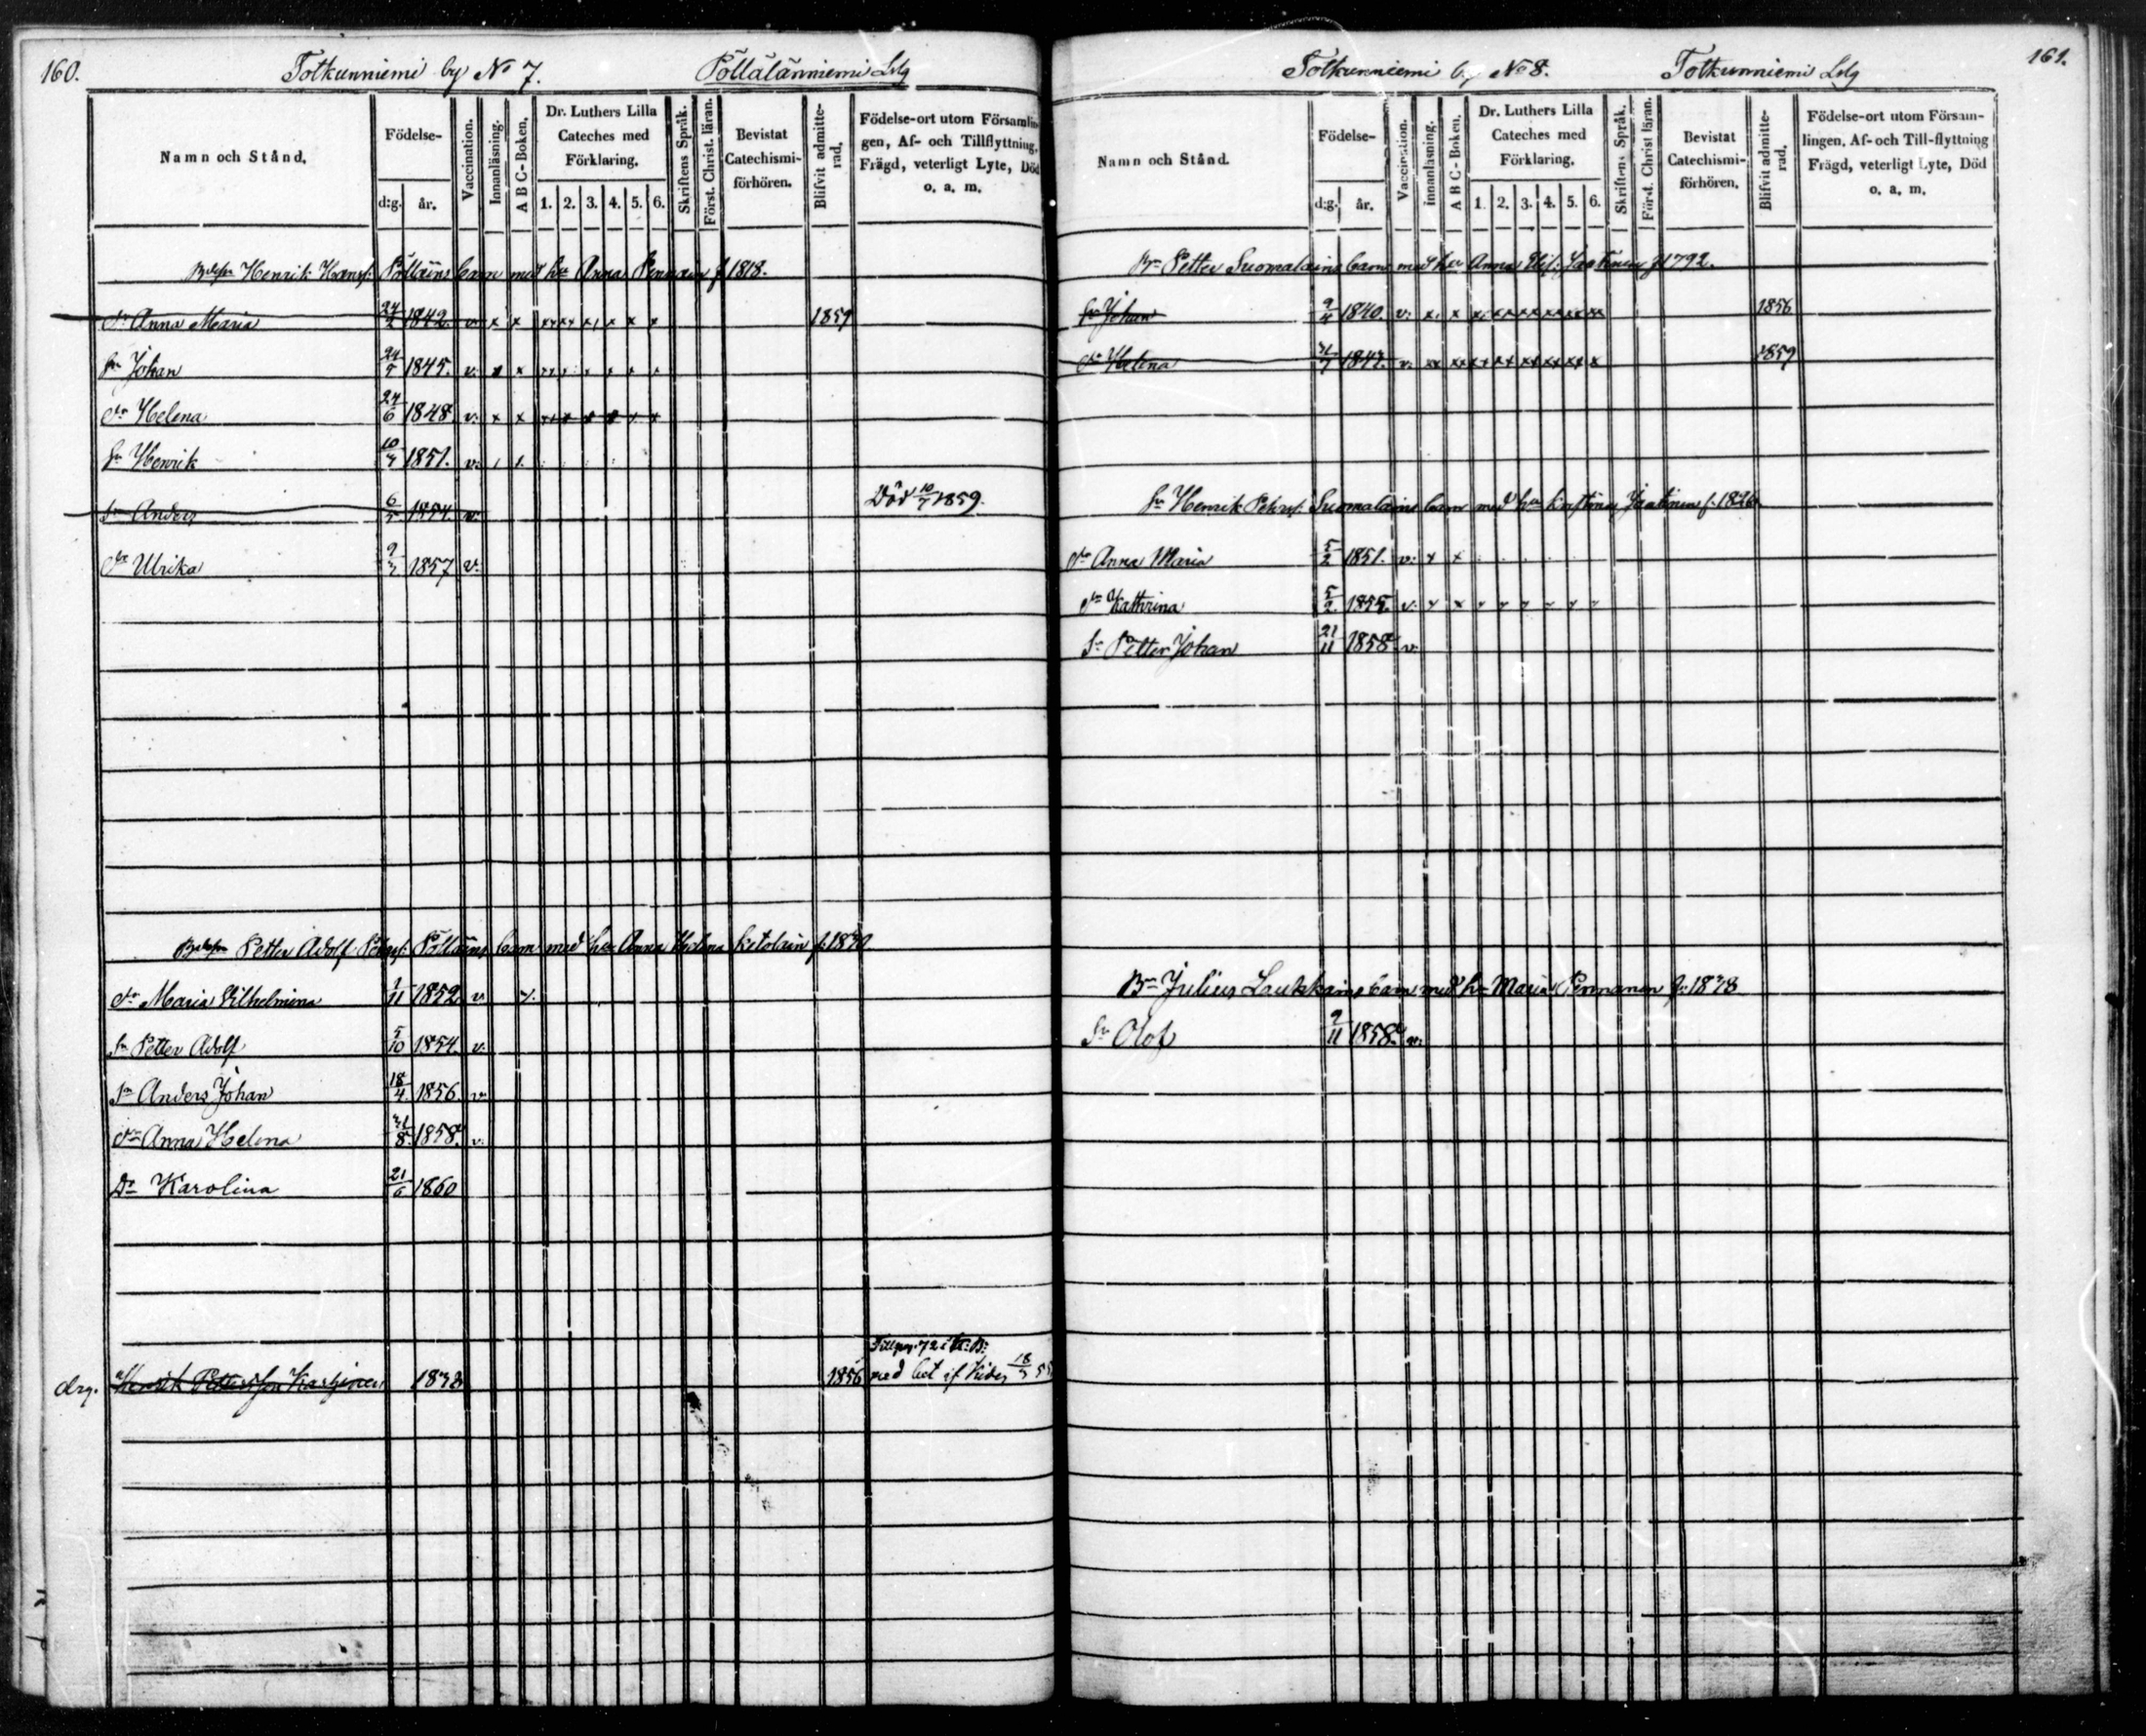 160.
Totkunniemi by No 7.
Pöllälänniemi Ldg
Namn och Stånd.
Födelse-
d:g. år.
Vaccination.
Innanläsning.
A B C-Boken.
Dr. Luthers Lilla
Cateches med
Förklaring.
1. 2. 3. 4. 5. 6.
Skriftens Språk.
Först. Christ. läran.
Bevistat
Catechismi-
förhören.
Blifvit admitte-
rad.
Födelse-ort utom Församlin
gen, Af- och Tillflyttning,
Frägd, veterligt Lyte, Död
o. a. m.
Henrik Hansf: Pölläins barn med hu Anna Pennain f 1818.
dr Anna Maria 24/2 1842. v. x x xx xx x x x 1859
Sn Johan 24/5 1845. v. x x xx x x x x x
dr Helena 24/6 1848. v. x x xx x x x x x
Sn Henrik 1851. v.
Sn Anders 6/5 1854. v. Död 10/7 1859.
dr Ulrika 1857 v.
Petter Adolf Pölläins barn med hu Anna Helena Ketolain f. 1830.
dr Maria Vilhelmina 1/11 1852 v.
Sn Petter Adolf 5/10 1854. v.
Sn Anders Johan 18/4 1856 v.
dr Anna Helena 31/8 1858. v.
Dr Karolina 21/6 1860
drg. Henrik Pettersson 1838 1856
med bet
161.
Totkunniemi by No 8.
Totkunniemi Ldg
Namn och Stånd.
Födelse-
d:g. år.
Vaccination.
Innanläsning.
A B C-Boken.
Dr. Luthers Lilla
Cateches med
Förklaring.
1. 2. 3. 4. 5. 6.
Skriftens Språk.
Först. Christ läran.
Bevistat
Catechismi-
förhören.
Blifvit admitte-
rad.
Födelse-ort utom Försam-
lingen, Af- och Till-flyttning
Frägd, veterligt Lyte, Död
o. a. m.
Bn Petter Suomalains barn med hu Anna Elis: f 1792.
Sn Johan 9/4 1840. v. 1856
dr Helena 1843. v. 1859
Sn Henrik Petersf: Suomalains barn med hu Kristina Jaatinen f. 1826.
dr Anna Maria 5/2 1851. v. x x
dr Kathrina 5/2 1855. v. x x
Sn Petter Johan 21/11 1858 v.
Bn Julius Laukkains barn med hu Maria Pennanen f: 1838
Sn Olof 9/11 1858. v.